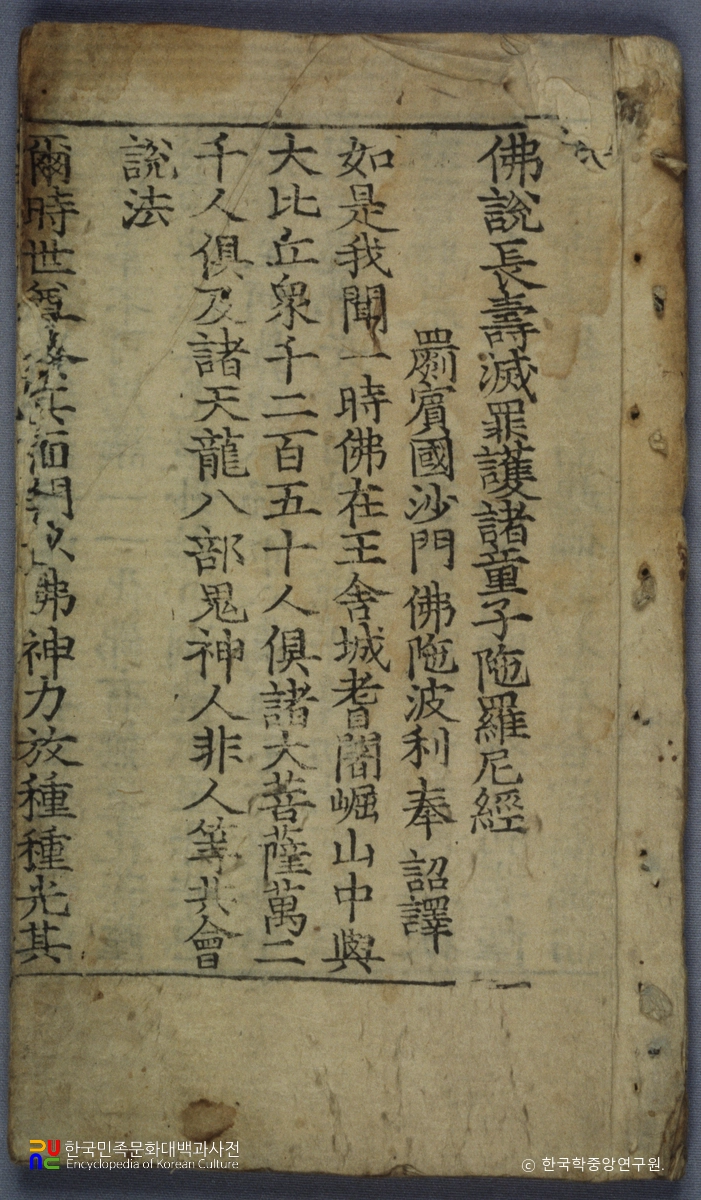 佛說長壽滅罪護諸童子陁羅尼經
罽賓國沙門佛陁波利奉 詔譯
如是我聞一時佛在王舍城耆闍崛山中與
大比丘衆千二百五十人俱諸大菩薩萬二
千人俱及諸天龍八部鬼神人非人等共會
說法
爾時世尊 其面門以佛神力放種種光其
한국민족문화대백과사전
Encyclopedia of Korean Culture
© 한국학중앙연구원.